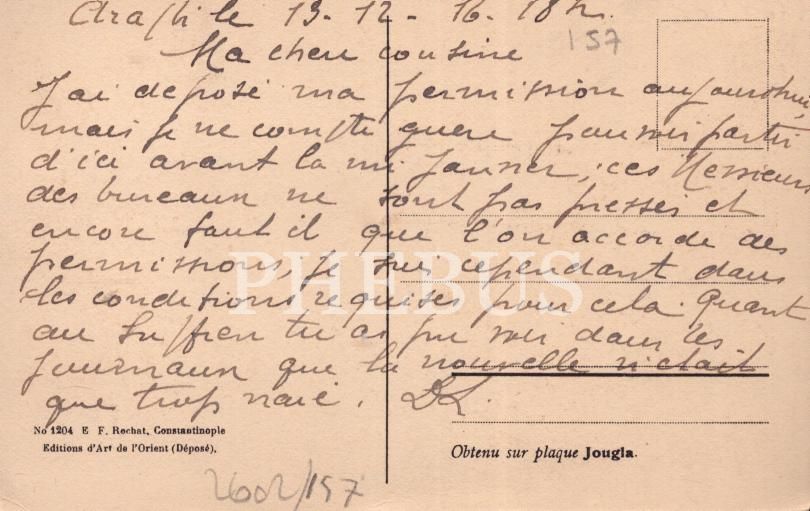 le 13-12-16. 18h.
157
Ma chere cousine
J'ai deposé ma permission aujourdhui,
mais je ne compte guere pouvoir partir
d'ici avant la mi Janvier, ces Messieurs
des bureaux ne sont pas pressés et
encore faut il que l'on accorde des
permissions, je suis cependant dans
les conditions requises pour cela. Quant
au Suffren tu as pu voir dans les
journaux que la nouvelle n'etait
que trop vraie. DL.
PHEBUS
No 1204 E. F. Rochat, Constantinople
Editions d'Art de l'Orient (Déposé).
Obtenu sur plaque Jougla.
2602/157